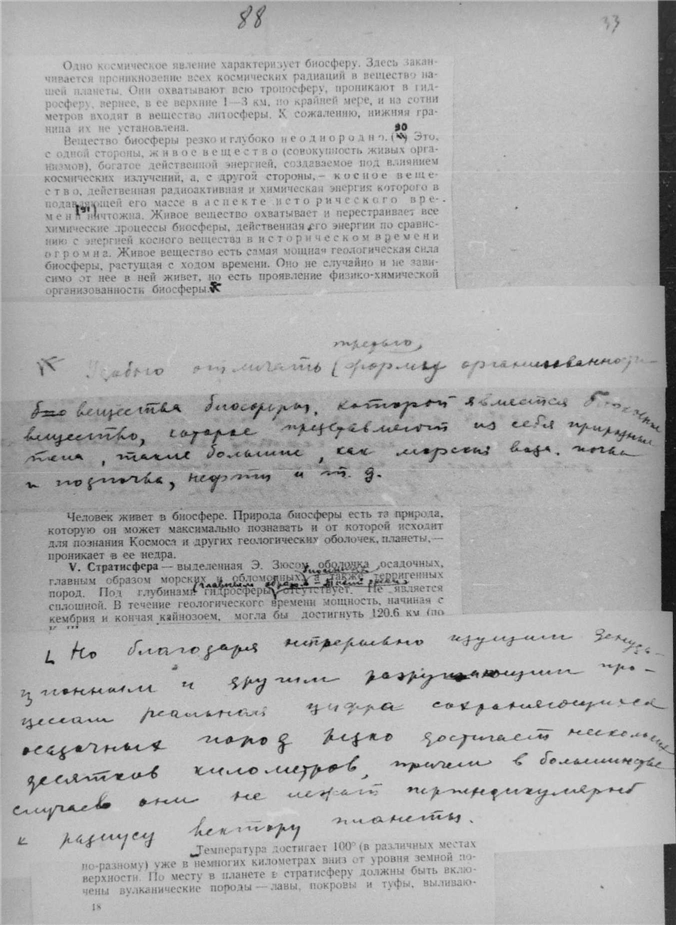 88
33
Одно космическое явление характеризует биосферу. Здесь закан-
чивается проникновение всех космических радиаций в вещество на-
шей планеты. Они охватывают всю тропосферу, проникают в гид-
росферу, вернее, в ее верхние 1—3 км, по крайней мере, и на сотни
метров входят в вещество литосферы. К сожалению, нижняя гра-
ница их не установлена.
Вещество биосферы резко и глубоко неоднородно. (90) Это,
с одной стороны, живое вещество (совокупность живых орга-
низмов), богатое действенной энергией, создаваемое под влиянием
космических излучений, а, с другой стороны,— косное веще-
ство, действенная радиоактивная и химическая энергия которого в
подавляющей его массе в аспекте исторического вре-
мени (91) ничтожна. Живое вещество охватывает и перестраивает все
химические процессы биосферы, действенная его энергии по сравне-
нию с энергией косного вещества в историческом времени
огромна. Живое вещество есть самая мощная геологическая сила
биосферы, растущая с ходом времени. Оно не случайно и не зави-
симо от нее в ней живет, но есть проявление физико-химической
организованности биосферы.
третью
отмечать форму организованности
вещества биосферы, которой является биокосное
вещество, которое представляют из себя природные
тела, такие большие, как морская вода, почва
и подпочва, нефти и т. д.
Человек живет в биосфере. Природа биосферы есть та природа,
которую он может максимально познавать и от которой исходит
для познания Космоса и других геологических оболочек, планеты,—
проникает в ее недра.
V. Стратисфера — выделенная Э. Зюсом оболочка осадочных,
главным образом морских и обломочных, а также терригенных
главным образом
пород. Под глубинами гидросферы отсутствует. Не является
сплошной. В течение геологического времени мощность, начиная с
кембрия и кончая кайнозоем, могла бы достигнуть 120.6 км (по
Но благодаря непрерывно идущим денуда-
ционным и другим разрушающим про-
цессам реальная цифра сохраняющихся
осадочных пород редко достигает нескольких
десятков километров, причем в большинстве
случаев они не лежат перпендикулярно
к радиусу вектору планеты.
Температура достигает 100° (в различных местах
по-разному) уже в немногих километрах вниз от уровня земной по-
верхности. По месту в планете в стратисферу должны быть вклю-
чены вулканические породы — лавы, покровы и туфы, выливаю-
18